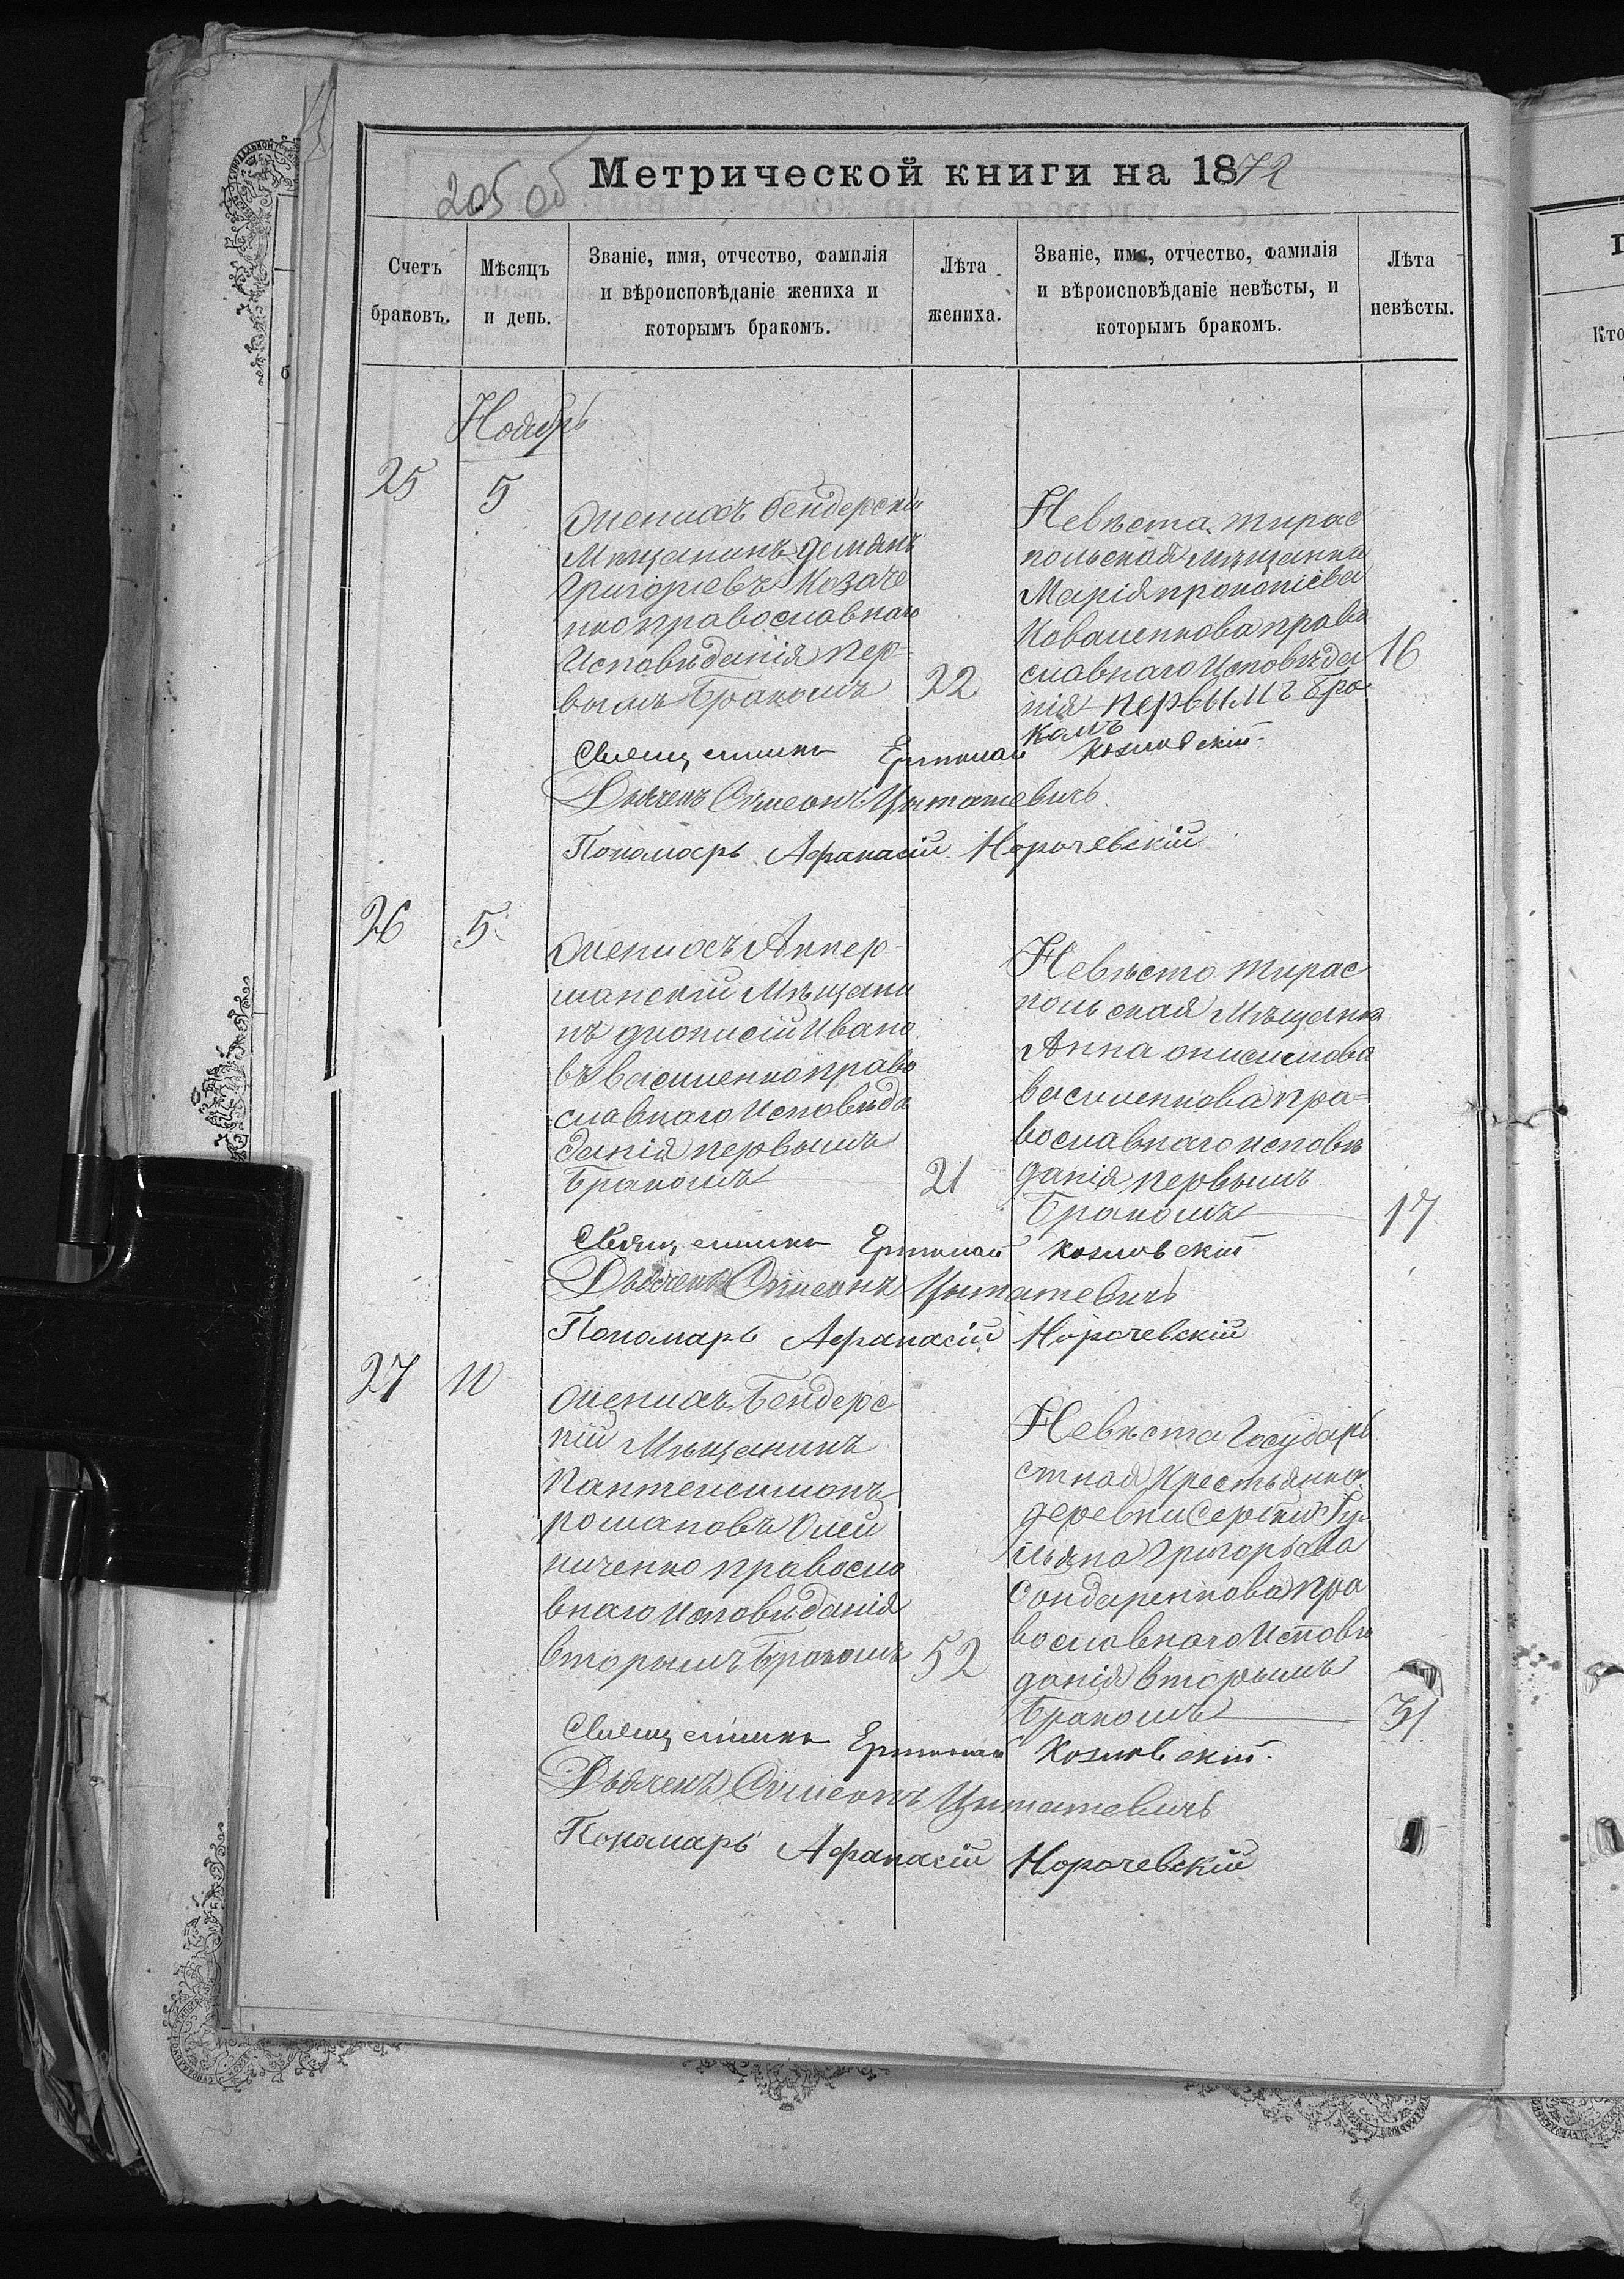 205 об
Метрической книги на 1872
Счетъ браковъ.
Мѣсяцъ и день.
Званіе, имя, отчество, фамилія
и вѣроисповѣданіе жениха и
которымъ бракомъ.
Лѣта жениха.
Званіе, имя, отчество, фамилія
и вѣроисповѣданіе невѣсты, и
которымъ бракомъ.
Лѣта невѣсты.
Ноябрь
25
5
Женихъ бендерскій
Мѣщанинъ Демянъ
Григоріевъ Козаче
нко православнаго
Исповѣданія пер-
вымъ Бракомъ
22
Невѣста тирас
польская мѣщанка
Марія прокопіева
Коваленкова право
славнаго Исповѣда
нія первымъ бра
комъ
16
Священникъ Ермолай Козловскій
Дьячекъ Симеонъ Цытатевичъ
Пономарь Афанасій Корочевскій
26
5
Женихъ Аккер-
манскій Мѣщани
нъ дионисій Ивано
въ Василенко право
славнаго Исповѣда
данія первымъ
Бракомъ
21
Невѣста тирас
польская Мѣщанка
Анна онисимова
Василенкова пра-
вославнаго исповѣ
данія первымъ
Бракомъ
17
Священникъ Ермолай Козловскій
Дьячекъ Симеонъ Цытатевичъ
Пономарь Афанасій Корочевскій
27
10
Женихъ Бендерс
кій Мѣщанинъ
Пантелеимонъ
романовъ Олей
ниченко правосла
внаго Исповѣданія
вторымъ Бракомъ
52
Невѣста Государь
стная Крестьянка
деревни
Григорьева
Бондаренкова пра
вославнаго Исповѣ
данія вторымъ
Бракомъ
31
Священникъ Ермолай Козловскій
Дьячекъ Симеонъ Цытатевичъ
Пономарь Афанасій Корочевскій
Кто